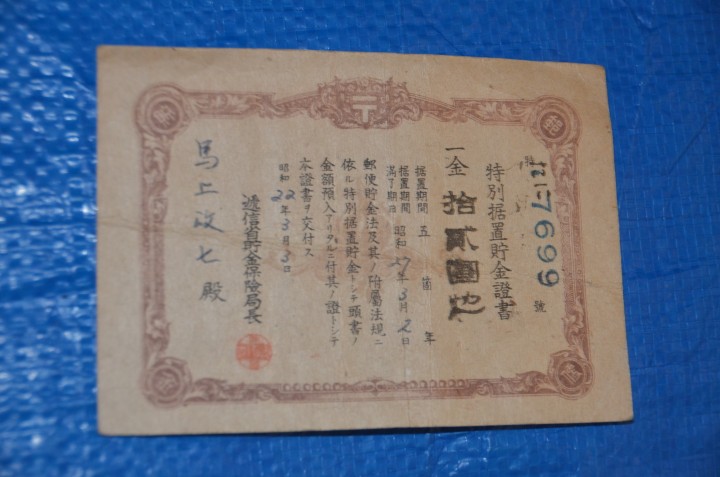 7699號
特別据置貯金證書
一金 拾貳圓也
据置期間 五箇年
据置期間
滿了期日 昭和27年3月2日
郵便貯金法及其ノ附屬法規ニ
依ル特別据置貯金トシテ頭書ノ
金額預入アリタルニ付其ノ證トシテ
本證書ヲ交付ス
昭和22年3月3日
遞信省貯金保險局長
馬上政七殿